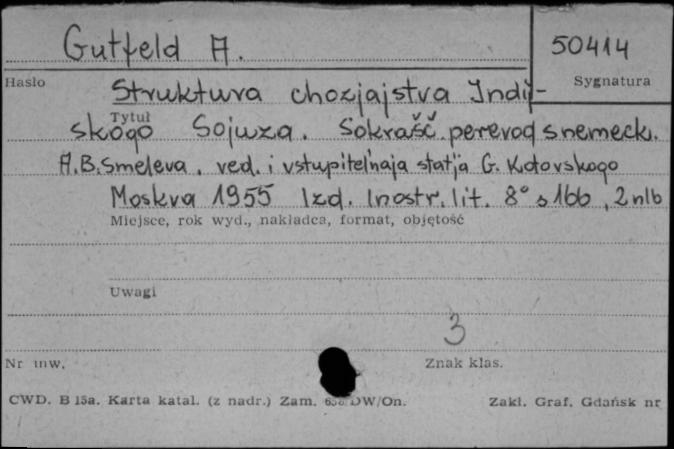 Gutfeld A.
50414
Hasło
Sygnatura
Struktura chozjajstva Indij-
Tytuł
skogo Sojuza. Sokrašč. perevod s nemeck.
A.B. Smeleva, ved. i vstupitel'naja statja G. Kotovskogo
Moskva 1955 Izd. Inostr. lit. 8° s 166, 2 nlb
Miejsce, rok wyd., nakładca, format, objętość
Uwagi
3
Nr inw.
Znak klas.
CWD. B 15a. Karta katal. (z nadr.) Zam. DW/On.
Zakł. Graf. Gdańsk nr